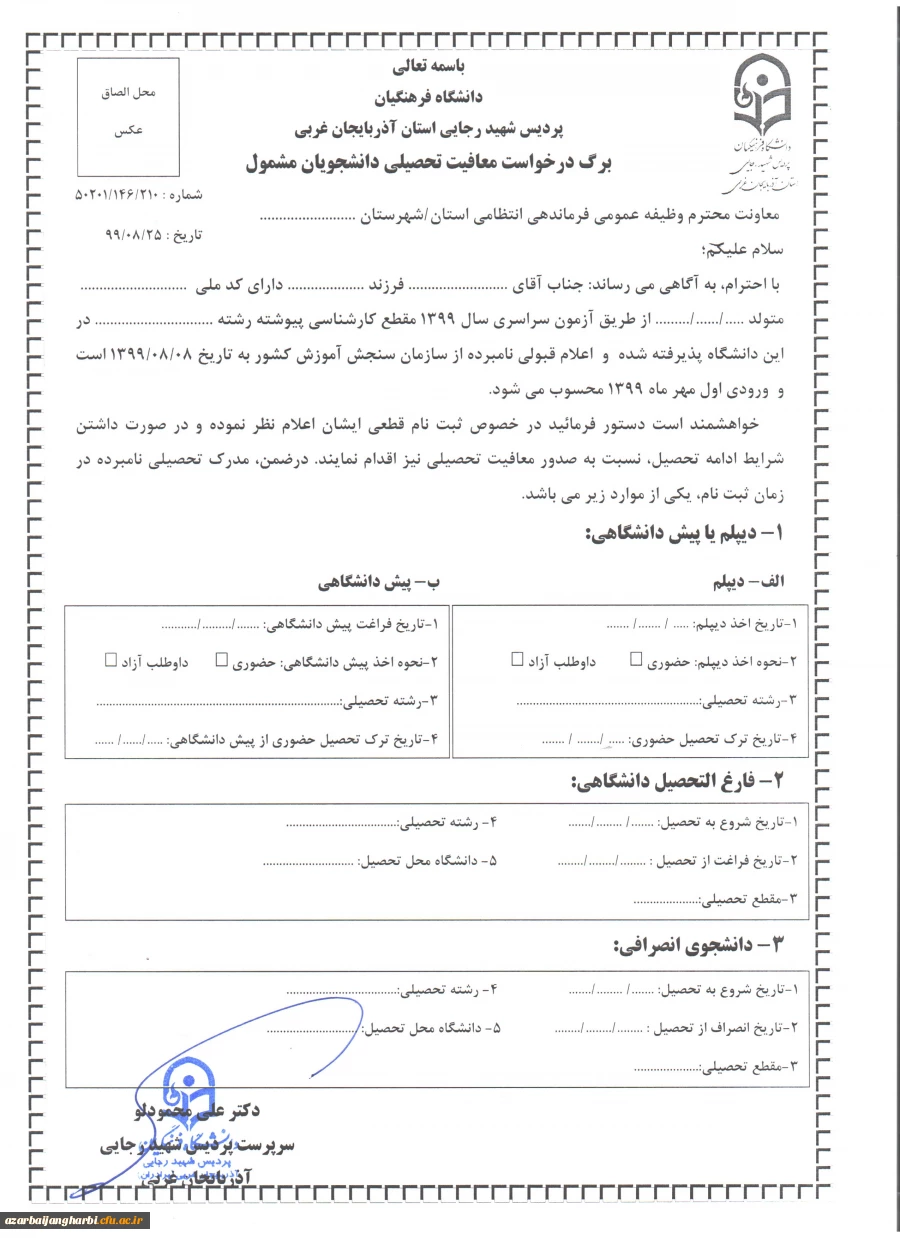 باسمه تعالی
دانشگاه فرهنگیان
پردیس شهید رجایی استان آذربایجان غربی
برگ درخواست معافیت تحصیلی دانشجویان مشمول
محل الصاق
عکس
دانشگاه فرهنگیان
پردیس شهید رجایی
استان آذربایجان غربی
شماره : ۵۰۲۰۱/۱۴۶/۲۱۰
تاریخ : ۹۹/۰۸/۲۵
معاونت محترم وظیفه عمومی فرماندهی انتظامی استان/شهرستان .........................
سلام علیکم؛
با احترام، به آگاهی می رساند: جناب آقای .......................... فرزند .................... دارای کد ملی ............................
متولد ...../....../......... از طریق آزمون سراسری سال ۱۳۹۹ مقطع کارشناسی پیوسته رشته ............................... در
این دانشگاه پذیرفته شده و اعلام قبولی نامبرده از سازمان سنجش آموزش کشور به تاریخ ۱۳۹۹/۰۸/۰۸ است
و ورودی اول مهر ماه ۱۳۹۹ محسوب می شود.
خواهشمند است دستور فرمائید در خصوص ثبت نام قطعی ایشان اعلام نظر نموده و در صورت داشتن
شرایط ادامه تحصیل، نسبت به صدور معافیت تحصیلی نیز اقدام نمایند. درضمن، مدرک تحصیلی نامبرده در
زمان ثبت نام، یکی از موارد زیر می باشد.
۱- دیپلم یا پیش دانشگاهی:
الف- دیپلم
۱-تاریخ اخذ دیپلم: ..... / ......./ .......
۲-نحوه اخذ دیپلم: حضوری □ داوطلب آزاد □
۳-رشته تحصیلی:...................................................
۴-تاریخ ترک تحصیل حضوری: ..... /......./ .......
ب- پیش دانشگاهی
۱-تاریخ فراغت پیش دانشگاهی: ......./........./...........
۲-نحوه اخذ پیش دانشگاهی: حضوری □ داوطلب آزاد □
۳-رشته تحصیلی:...................................................................
۴-تاریخ ترک تحصیل حضوری از پیش دانشگاهی: ...../....../ ......
۲- فارغ التحصیل دانشگاهی:
۱-تاریخ شروع به تحصیل: ......./ ......../....... ۴- رشته تحصیلی:...............................
۲-تاریخ فراغت از تحصیل : ......../......../........ ۵- دانشگاه محل تحصیل: .........................
۳-مقطع تحصیلی:....................
۳- دانشجوی انصرافی:
۱-تاریخ شروع به تحصیل: ......./ ......../....... ۴- رشته تحصیلی:...............................
۲-تاریخ انصراف از تحصیل : ......../......../........ ۵- دانشگاه محل تحصیل:.........................
۳-مقطع تحصیلی:....................
دکتر علی محمودلو
سرپرست پردیس شهید رجایی
آذربایجان غربی
دانشگاه فرهنگیان
پردیس شهید رجایی
azarbaijangharbi.cfu.ac.ir